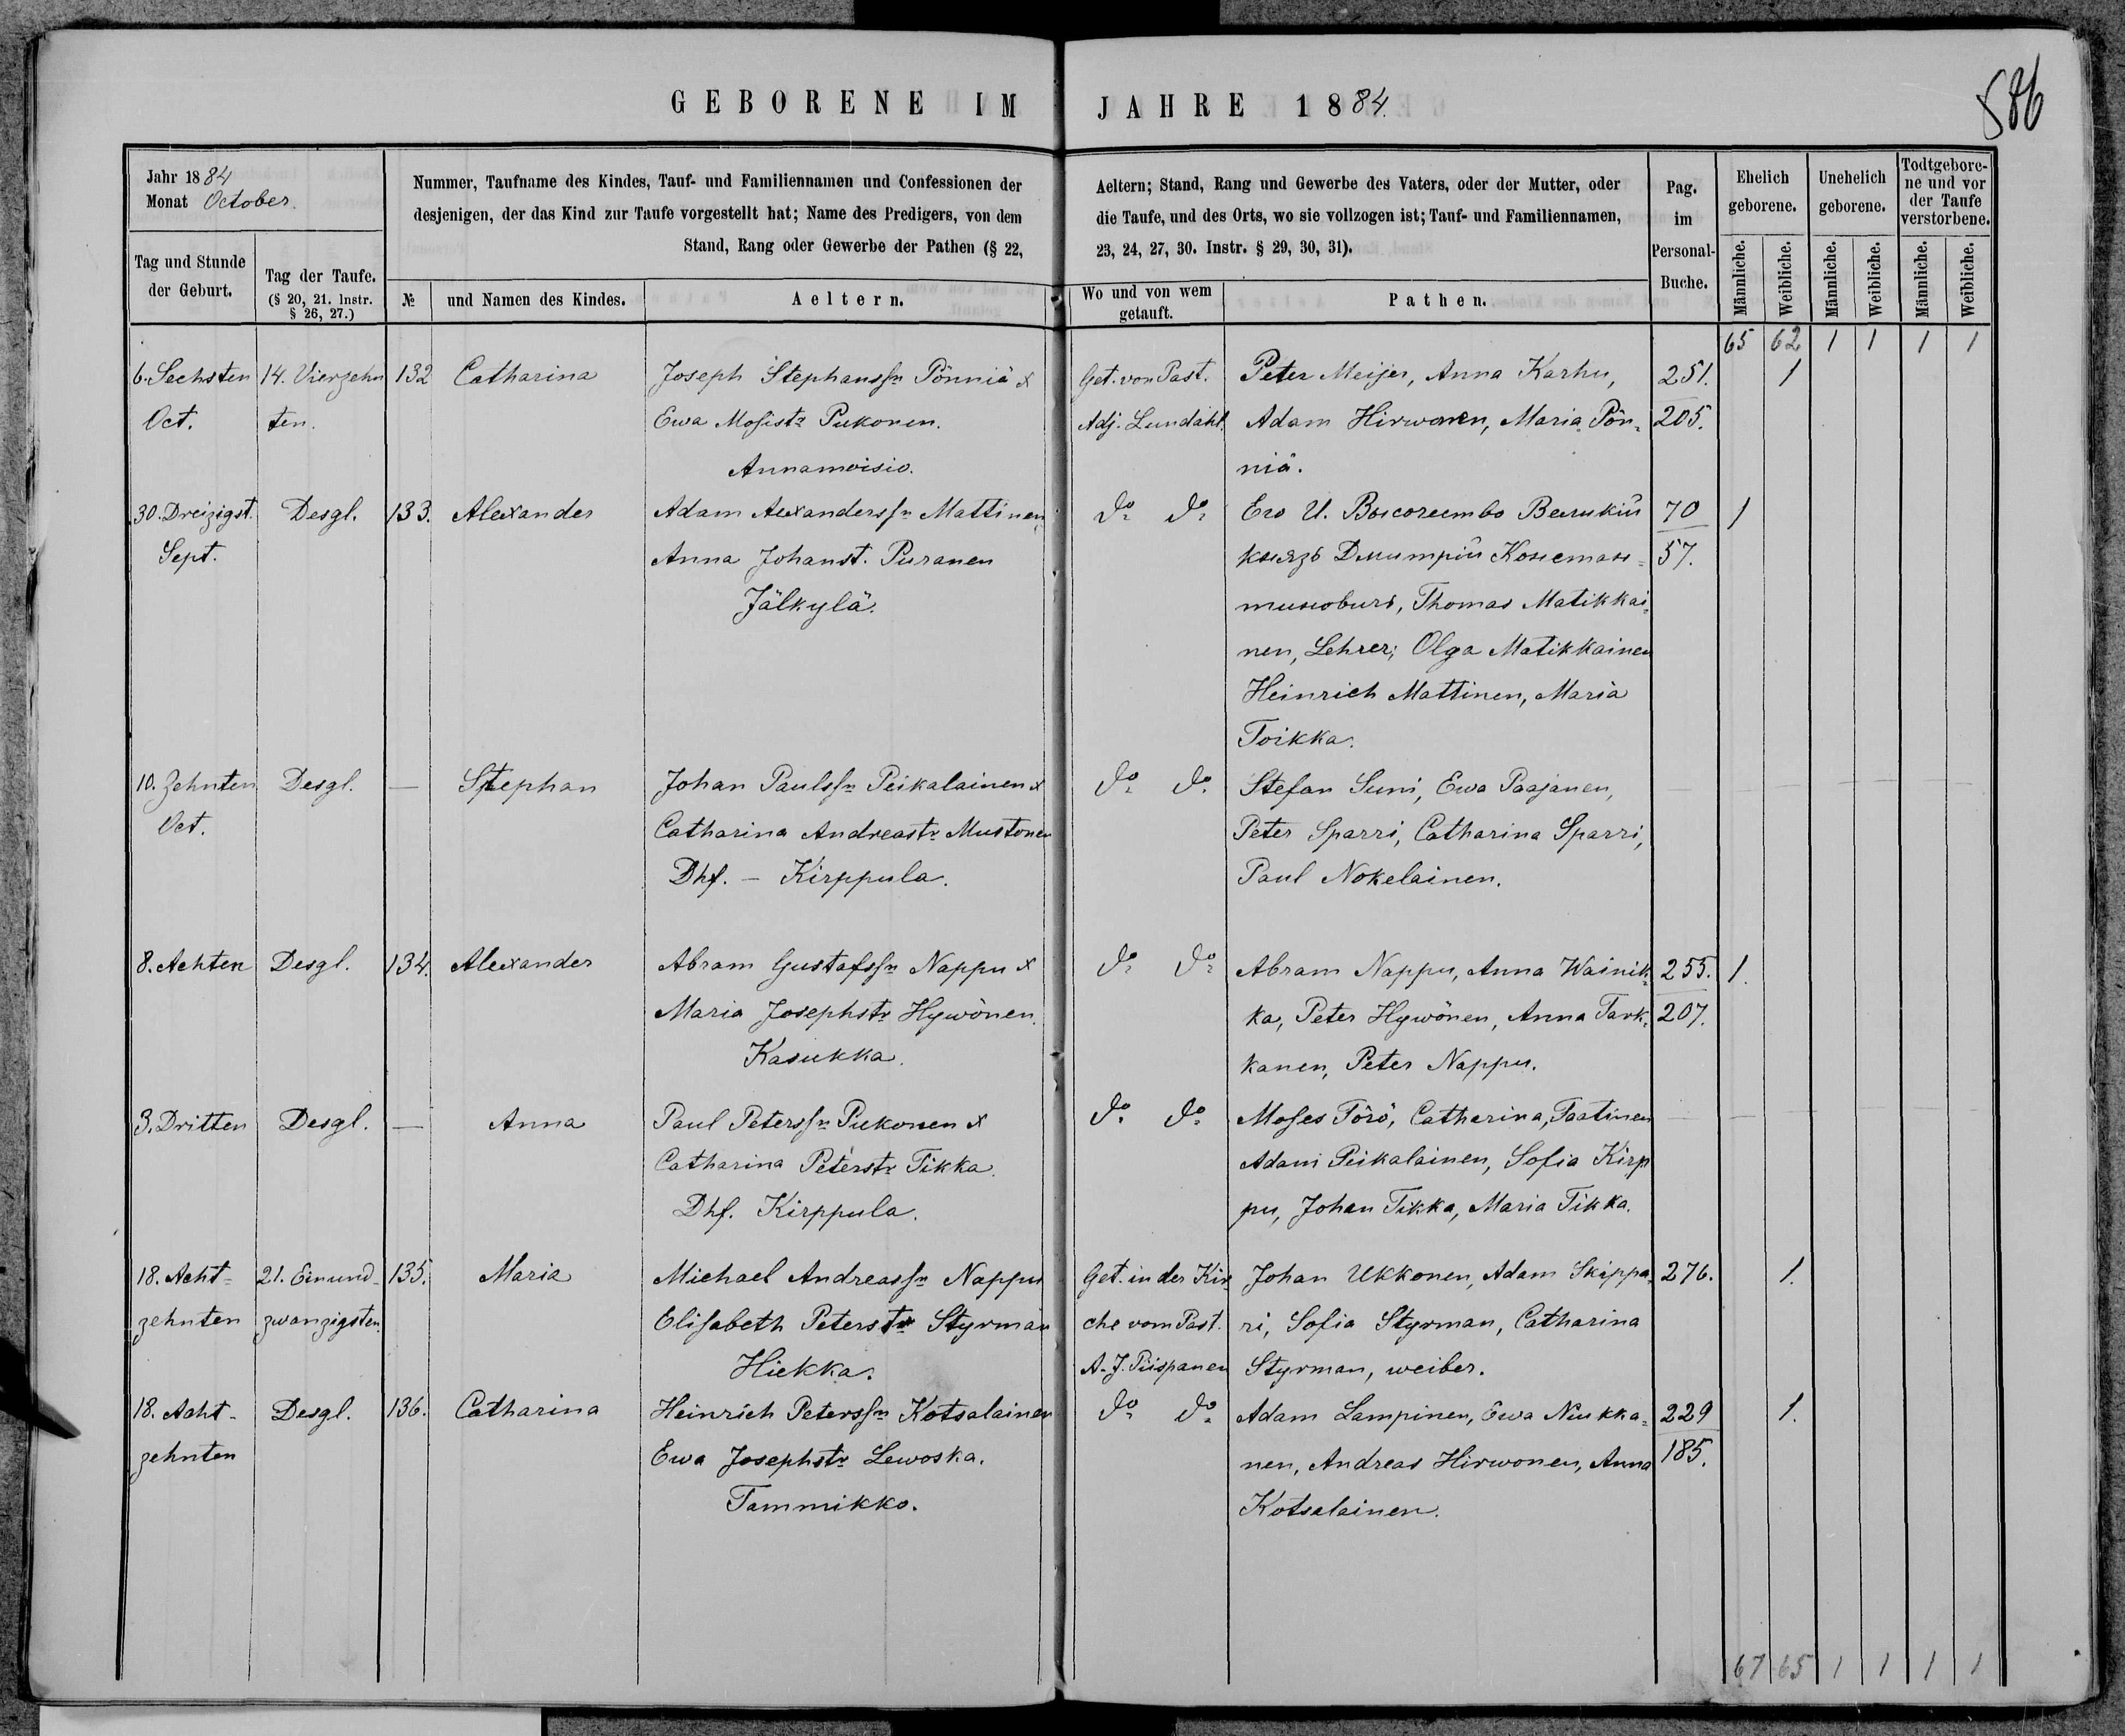 586
GEBORENE IM JAHRE 1884.
Jahr 1884
Monat October.
Nummer, Taufname des Kindes, Tauf- und Familiennamen und Confessionen der
desjenigen, der das Kind zur Taufe vorgestellt hat; Name des Predigers, von dem
Stand, Rang oder Gewerbe der Pathen (§ 22,
Aeltern; Stand, Rang und Gewerbe des Vaters, oder der Mutter, oder
die Taufe, und des Orts, wo sie vollzogen ist; Tauf- und Familiennamen,
23, 24, 27, 30. Instr. § 29, 30, 31).
Pag.
im
Personal-
Buche.
Ehelich
geborene.
Unehelich
geborene.
Todtgebore-
ne und vor
der Taufe
verstorbene.
Tag und Stunde
der Geburt.
Tag der Taufe.
(§ 20, 21. Instr.
§ 26, 27.)
№
und Namen des Kindes.
Aeltern.
Wo und von wem
getauft.
Pathen.
Männliche.
Weibliche.
Männliche.
Weibliche.
Männliche.
Weibliche.
65 62 1 1 1 1
6. Sechsten 14. Vierzehn 132 Catharina Joseph Stephanssn Pönniä & Get. von Past. Peter Meijer, Anna Karhu, 251. 1
Oct. ten. Ewa Mosistr Pukonen. Adj. Lundahl. Adam Hirwonen, Maria Pön- 205.
Annamoisio. niä.
30. Dreizigst. Desgl. 133. Alexander Adam Alexanderssn Mattinen do do Его И. Высочество Великій 70 1
Sept. Anna Johanst. Puranen князь Дмитрій Констан- 57.
Jälkylä. тиновичъ, Thomas Matikkai-
nen, Lehrer; Olga Matikkainen
Heinrich Mattinen, Maria
Toikka.
10. Zehnten Desgl. — Stephan Johan Paulssn Peikalainen & do do Stefan Suni, Ewa Paajanen,
Oct. Catharina Andreastr Mustonen Peter Sparri, Catharina Sparri,
Dhf. - Kirppula. Paul Nokelainen.
8. Achten Desgl. 134. Alexander Abram Gustafssn Nappu & do do Abram Nappu, Anna Wainik- 255. 1.
Maria Josephstr Hywönen. ka, Peter Hywönen, Anna Tark- 207.
Kasukka. kanen, Peter Nappu.
3. Dritten Desgl. — Anna Paul Peterssn Pukonen & do do Moses Törö, Catharina, Taatinen
Catharina Peterstr Tikka. Adam Peikalainen, Sofia Kirp
Dhf. Kirppula. pu, Johan Tikka, Maria Tikka.
18. Acht- 21. Einund- 135. Maria Michael Andreassn Nappu Get. in der Kir- Johan Ukkonen, Adam Skippa- 276. 1.
zehnten zwanzigsten. Elisabeth Peterstr Styrman che vom Past. ri, Sofia Styrman, Catharina
Hiekka. A. J. Piispanen Styrman, weiber.
18. Acht- Desgl. 136. Catharina Heinrich Peterssn Kotsalainen do do Adam Lampinen, Ewa Nukka- 229 1.
zehnten Ewa Josephstr Lewoska. nen, Andreas Hirwonen, Anna 185.
Tammikko. Kotsalainen.
67 65 1 1 1 1